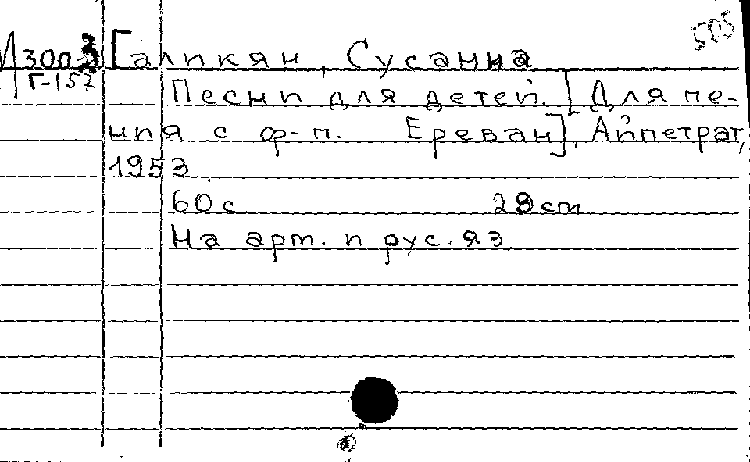 505
И300.3 Галикян, Сусанна
Г-157
Песни для детей. [Для пе-
ния с ф-п. Ереван], Айпетрат,
1953
60с 29см
На арт. и рус. яз